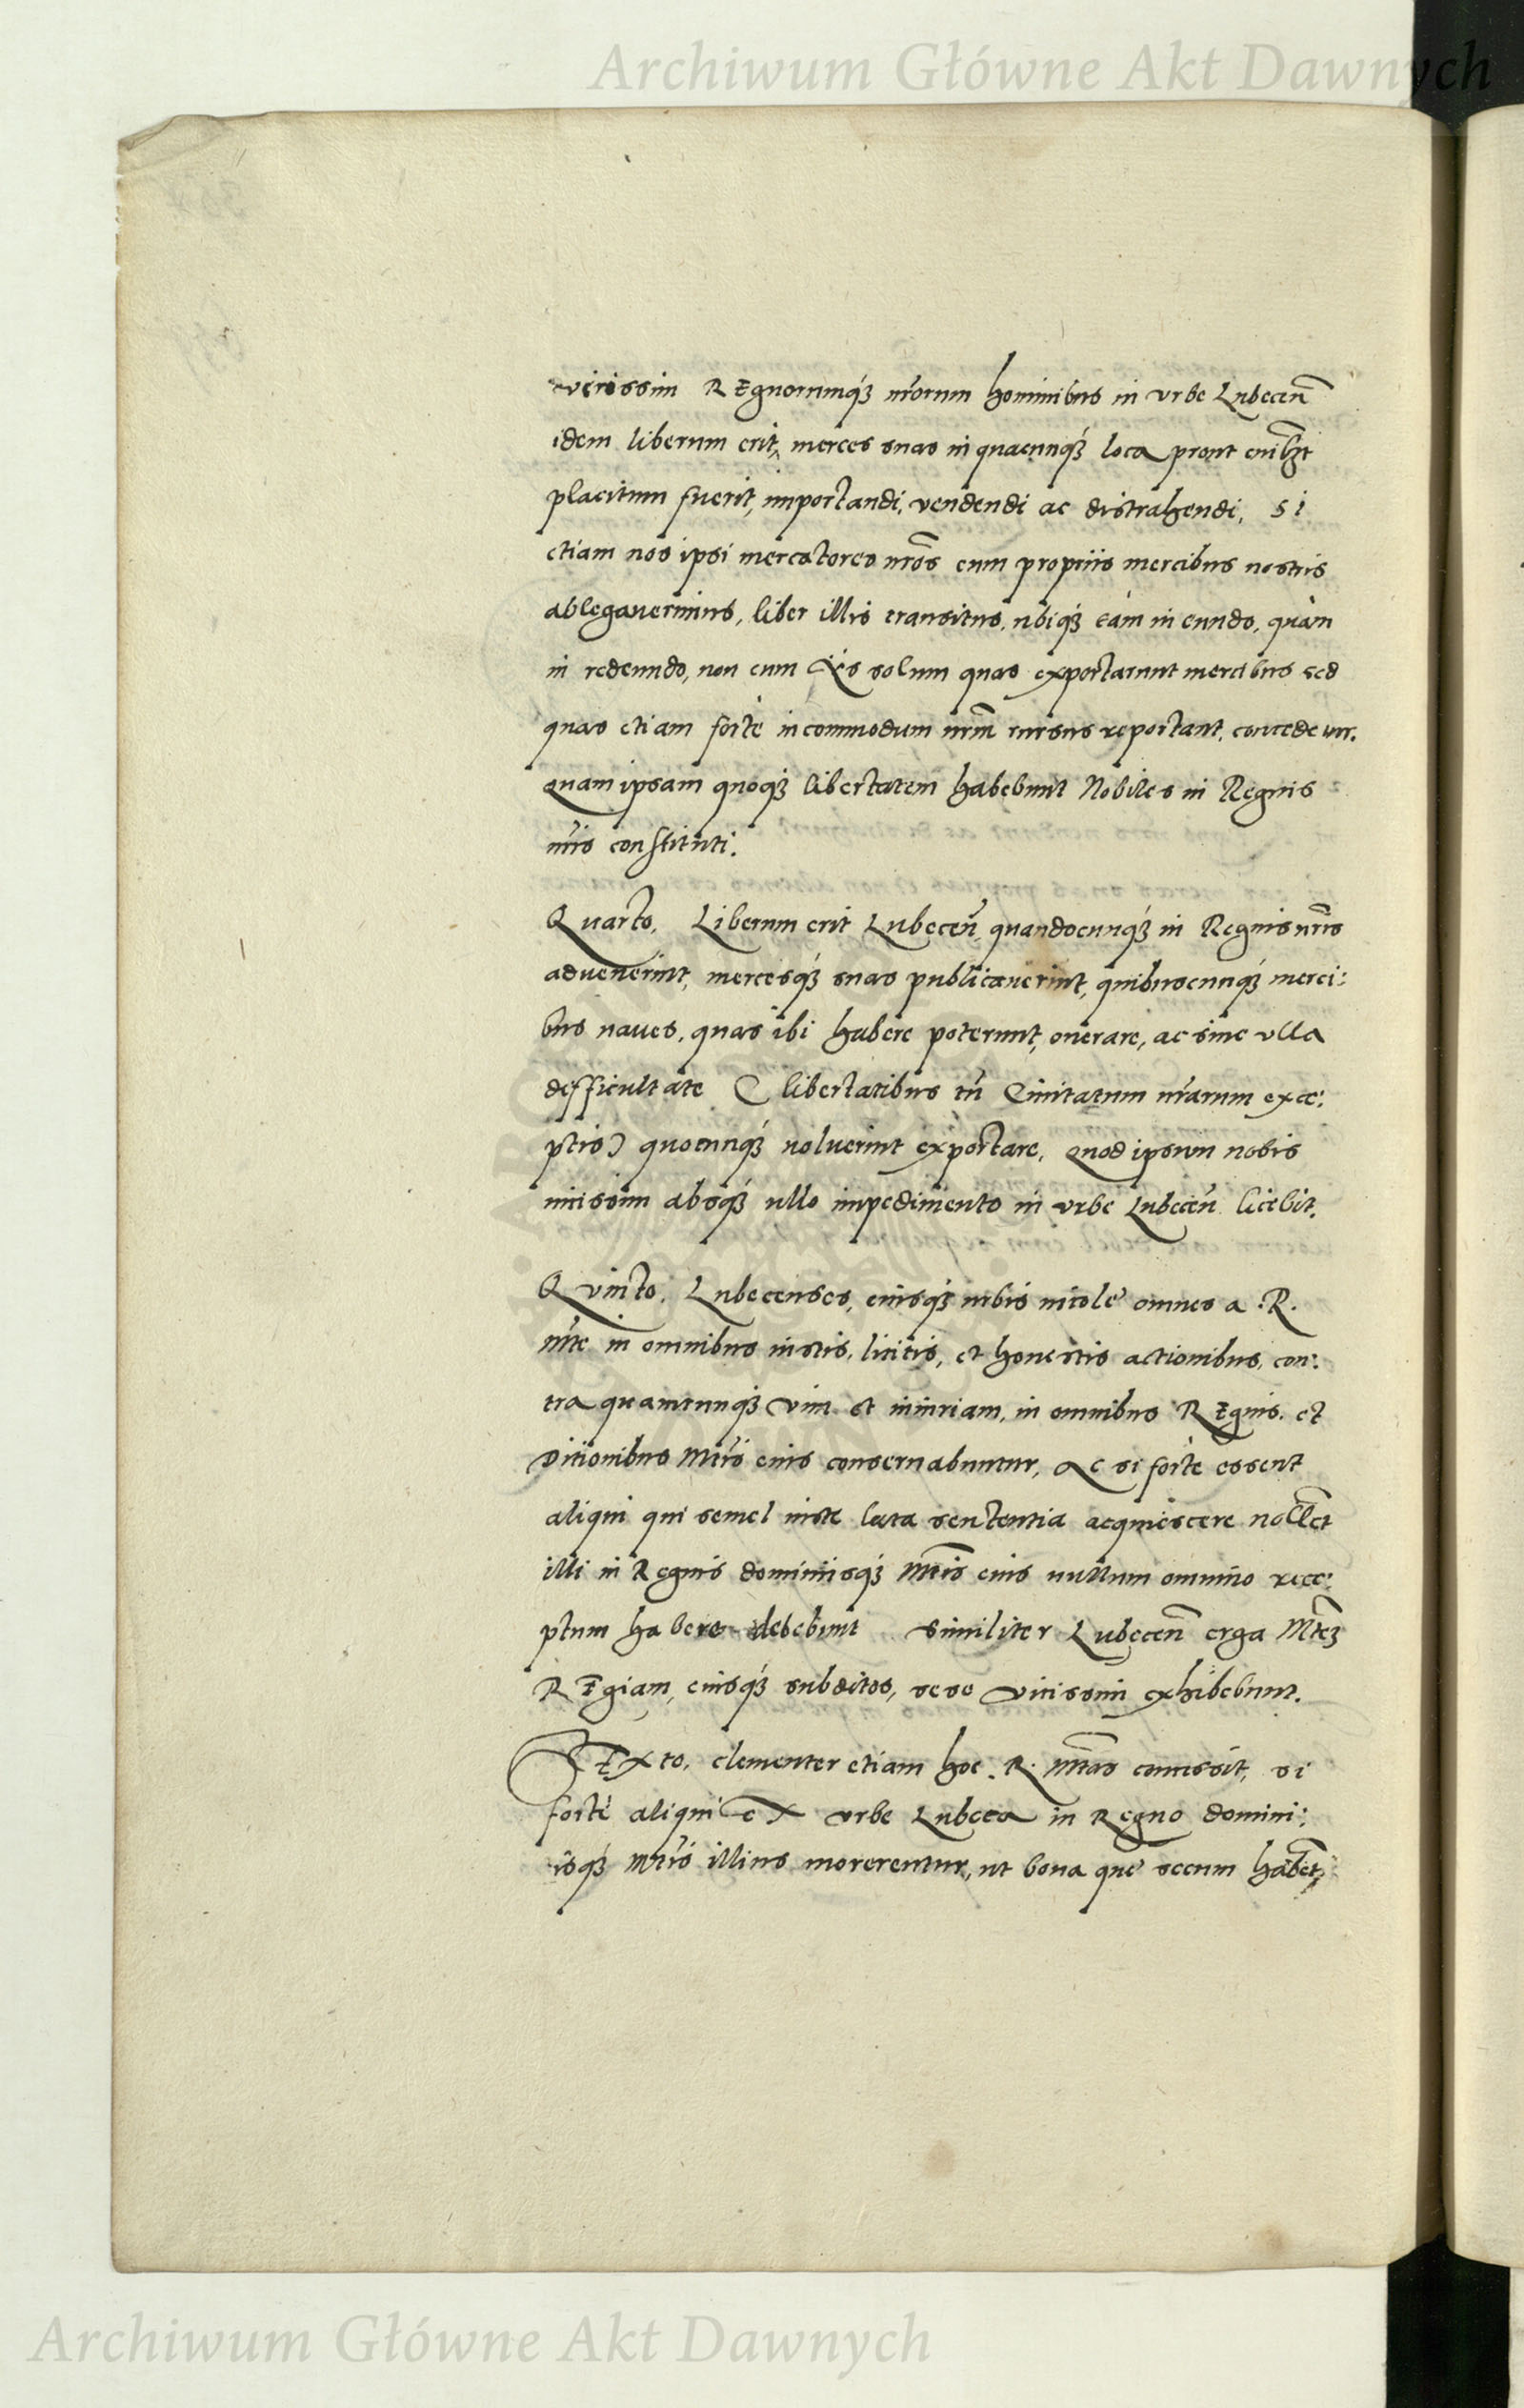 Archiwum Główne Akt Dawnych
vicissim REgnorumq́ꝫ nr̃orum hominibus in vrbe Lubeceñ
idem liberum erit, merces suas in quacunq́ꝫ loca prout cuilibet
placitum fuerit, importandi, vendendi ac distrahendi, Si
etiam nos ipsi mercatores nr̃os cum propriis mercibus nostris
ablegauerimus, liber illis transitus, ubiq́ꝫ tàm in eundo, quàm
in redeundo, non cum iis solum quas exportarunt mercibus sed
quas etiam fortè in commodum nr̃m rursus reportant, concedetur.
Quam ipsam quoq́ꝫ libertatem habebunt Nobiles in Regnis
nr̃is constituti.
Quarto, Liberum erit Lubeceñ, quandocunq́ꝫ in Regnis nr̃is
aduenerint, mercesq́ꝫ suas publicauerint, quibuscunq́ꝫ merci:
bus naues, quas ibi habere poterunt, onerare, ac sine vlla
difficultate ( libertatibus tñ Ciuitatum nr̃arum exce:
ptis) quocunq́ꝫ uoluerint exportare, Quod ipsum nobis
uicissim absq́ꝫ ullo impedimento in vrbe Lubeceñ licebit.
Quinto, Lubecenses, eiusq́ꝫ urbis incolę omnes a .R.
mt̃e in omnibus iustis, licitis, et honestis actionibus, con:
tra quamcunq́ꝫ vim et iniuriam, in omnibus REgnis, et
Ditionibus Mt̃is eius conseruabuntur, Ac si fortè essent
aliqui qui semel iuste lata sententia acquiescere nollẽt
illi in Regnis dominiisq́ꝫ Mt̃is eius nullum omnino rece:
ptum habere debebunt Similiter Lubeceñ erga Mt̃eꝫ
REgiam, eiusq́ꝫ subditos, sese vicissim exhibebunt.
SExto, clementer etiam hoc .R. Mt̃as concessit, si
fortè aliqui eX vrbe Lubeca in Regno domini:
isq́ꝫ Mt̃is illius morerentur, ut bona quę secum habẽt,
Archiwum Główne Akt Dawnych